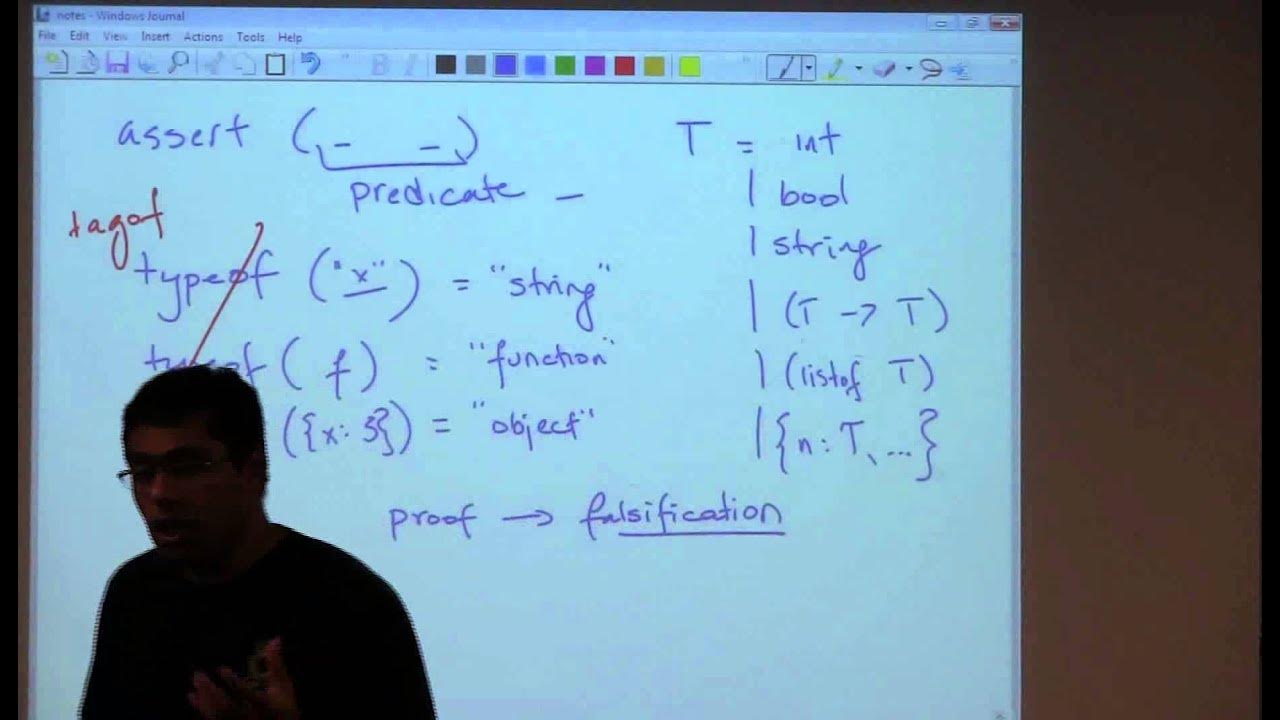 notes - Windows Journal
File Edit View Insert Actions Tools Help
assert ( _ _ )
predicate _
tagof
typeof ("x") = "string"
typeof ( f ) = "function"
({x: 3}) = "object"
proof → falsification
T = int
| bool
| string
| (T → T)
| (listof T)
| {n : T, ...}